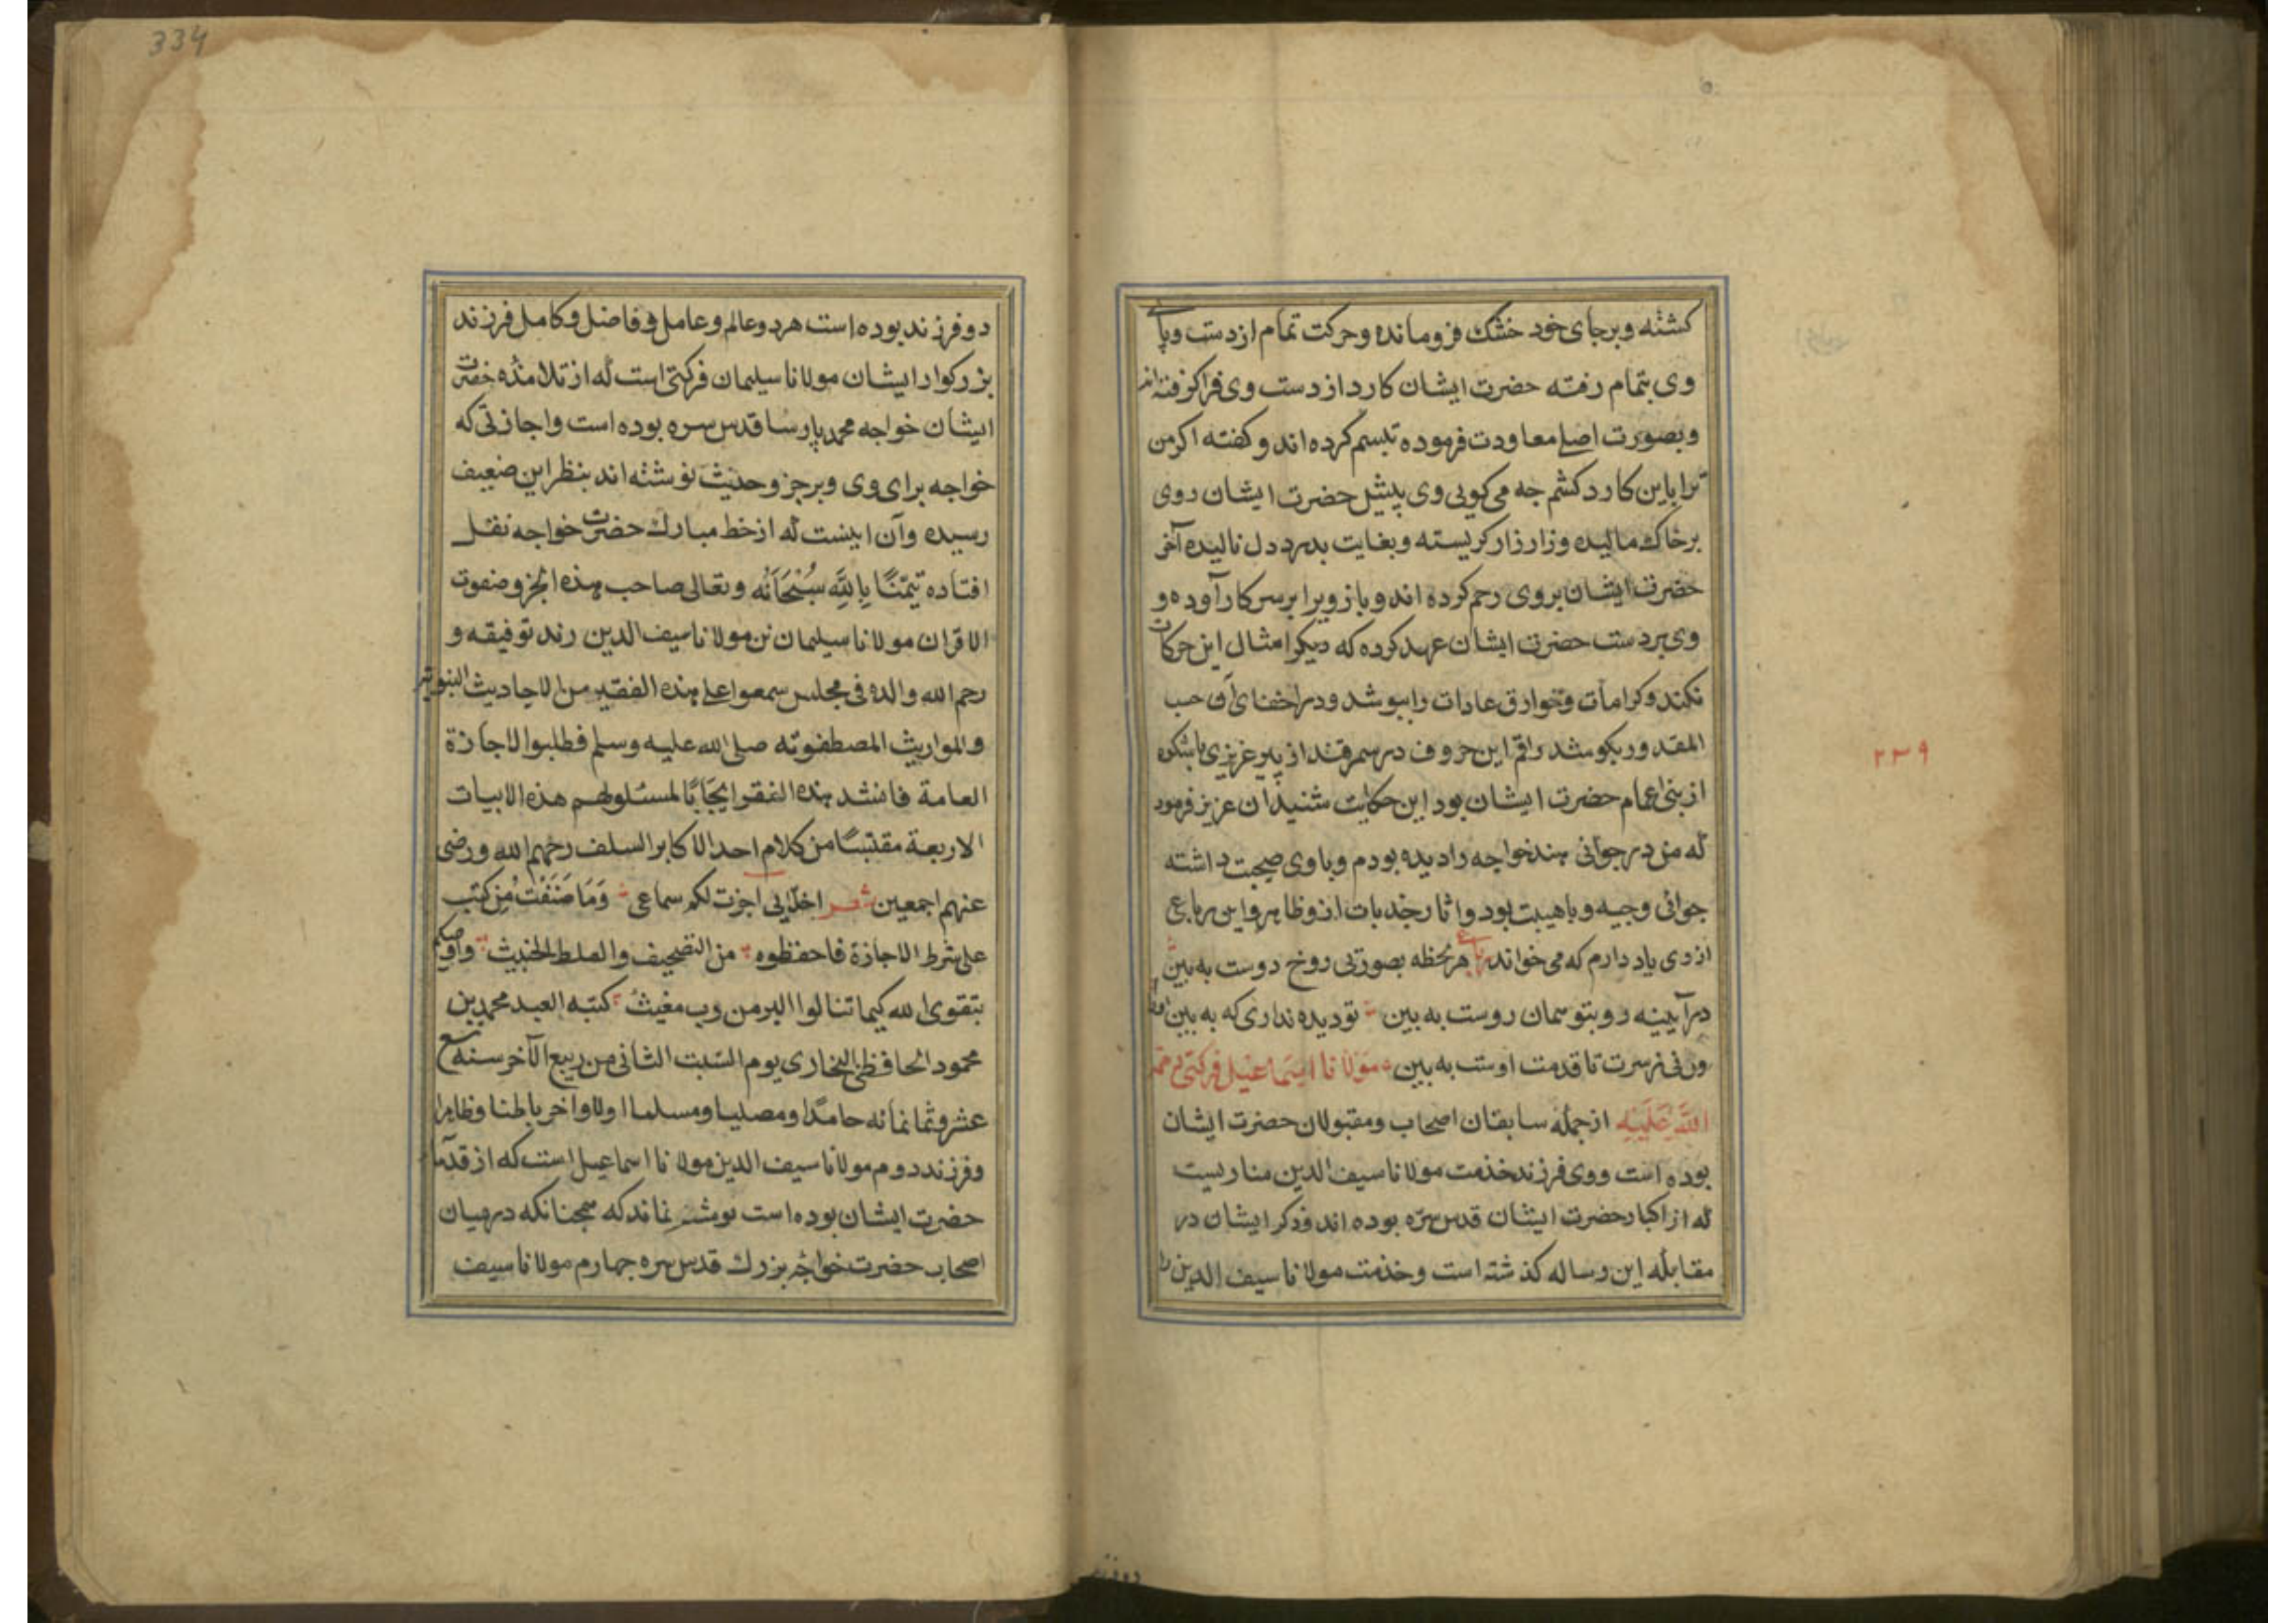 کشته وبرجای خود خشک فرومانده وحرکت تمام ازدست وپای
وی بتمام رفته حضرت ایشان کارد از دست وی فراکرفته اند
وبصورت اصلی معاودت فرموده تبسم کرده اند وکفته اکرمن
ترا باین کارد کشم جه می کویی وی پیش حضرت ایشان روی
برخاک مالیده وزارزار کریسته وبغایت بدرد دل نالیده آخر
حضرت ایشان بروی رحم کرده اند وباز ویرا برسرکار آورده و
وی بردست حضرت ایشان عهد کرده که دیکر امثال این حرکات
نکند وکرامات وخوارق عادات را بپوشد ودر اخفای آن حسب
المقدور بکوشد راقم این حروف درسمرقند از پیر عزیزی
ازبنی اعمام حضرت ایشان بود این حکایت شنید آن عزیز فرمود
که من درجوانی هندخواجه رادیده بودم وباوی صحبت داشته
جوانی وجیه وباهیبت بود وآثار جذبات ازوظاهر واین رباعی
ازوی یاد دارم که می خواند رباعی هرلحظه بصورتی رخ دوست به بین
درآیینه رو بتو همان روست به بین تودیده نداری که به بین
ورنی زسرت تا قدمت اوست به بین مولانا اسماعیل فرکتی رحمة
الله علیه ازجمله سابقان اصحاب ومقبولان حضرت ایشان
بوده است ووی فرزند خدمت مولانا سیف الدین مناریست
که از اکبار حضرت ایشان قدس سره بوده اند وذکر ایشان در
مقابله این رساله کذشته است وخدمت مولانا سیف الدین را
۲۳۹
دوفرزند
334
دوفرزند بوده است هردوعالم وعامل وفاضل وکامل فرزند
بزرکوار ایشان مولانا سلیمان فرکتی است که از تلامذه حضرت
ایشان خواجه محمد پارسا قدس سره بوده است واجازتی که
خواجه برای وی وبرجزو حدیث نوشته اند بنظر این ضعیف
رسیده وآن اینست که ازخط مبارک حضرت خواجه نقل
افتاده تیمّنًا بِاللهِ سُبْحَانَه وتعالی صاحب هذه الجزو صفوت
الاقران مولانا سلیمان بن مولانا سیف الدین زند توفیقه و
رحم الله والده فی مجلس سمعوا علی هذه الفقیر من الاحادیث النبویة
والمواریث المصطفویه صلی الله علیه وسلم فطلبوا الاجازة
العامة فانشد هذه الفقیر ایجابًا لمسئلولهم هذه الابیات
الاربعة مقتبسًا من کلام احد الاکابر السلف رحمهم الله ورضی
عنهم اجمعین شعر اخلائی اجزت لکم سماعی وَمَا صَنَفْتُ مِن کتب
علی شرط الاجازة فاحفظوه من التصحیف والغلط الخبیث واوصیکم
بتقوی الله کیما تنالوا البر من رب مغیث کتبه العبد محمد بن
محمود الحافظی البخاری یوم السّبت الثانی من ربیع الآخر سنه تسع
عشر وثمانمائه حامدًا ومصلیا ومسلما اولا واخر باطنا وظاهرا
وفرزند دوم مولانا سیف الدین مولانا اسماعیل است که از قدمآء
حضرت ایشان بوده است پوشیده نماند که همجنانکه درمیان
اصحاب حضرت خواجه بزرک قدس سره جهارم مولانا سیف